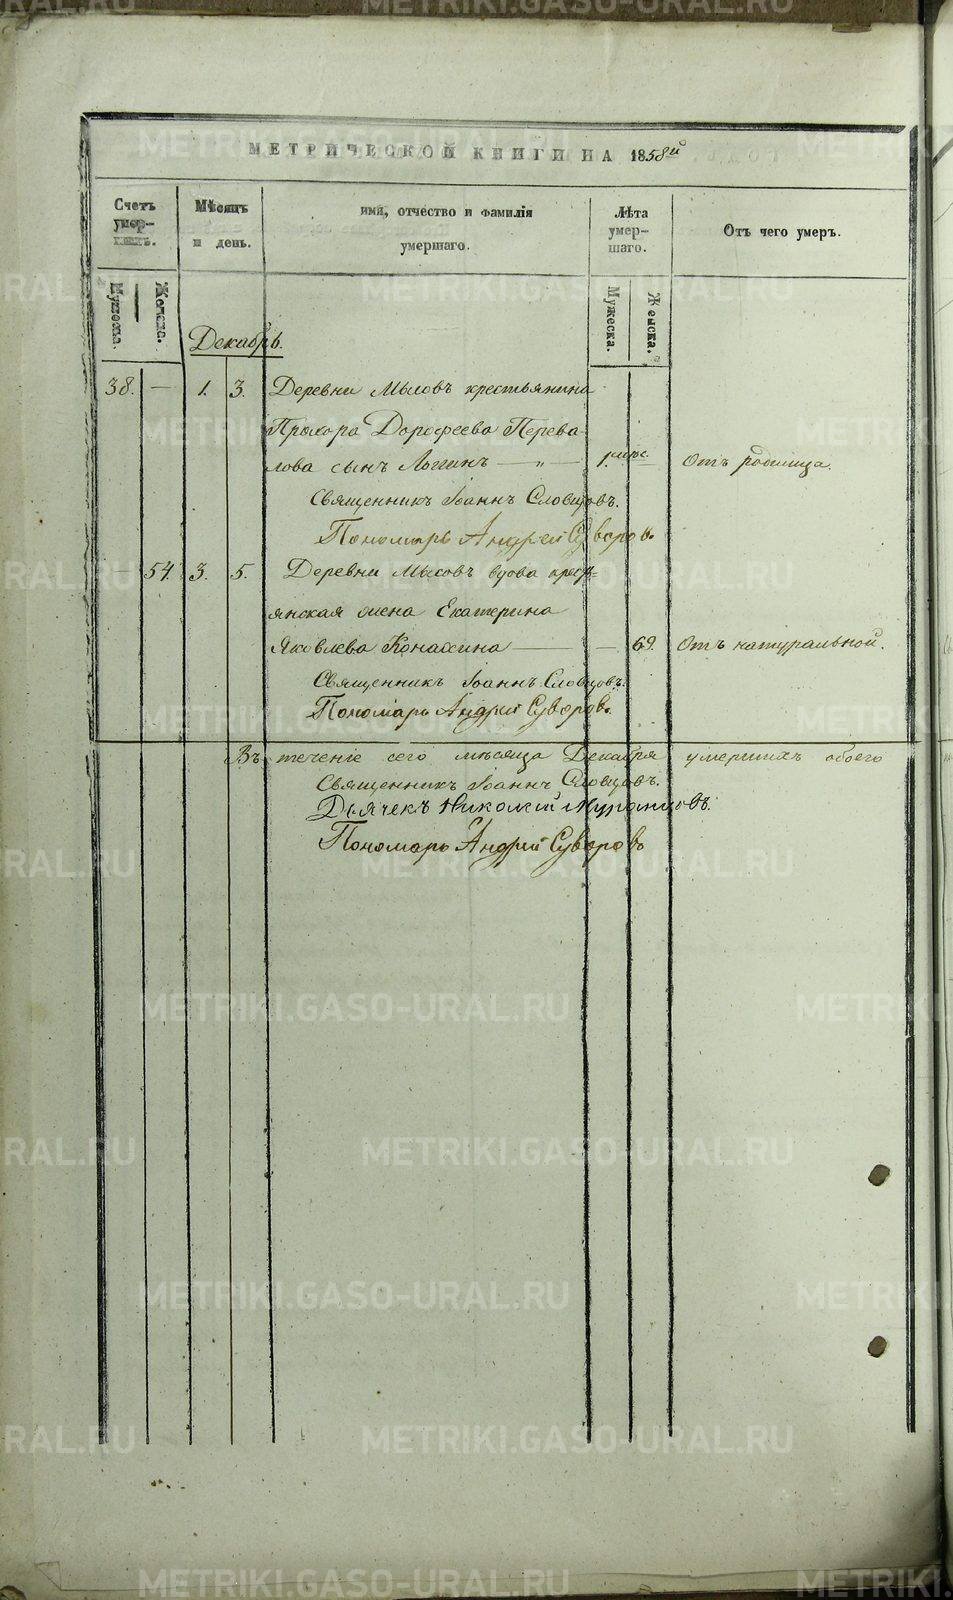 МЕТРИЧЕСКОЙ КНИГИ НА 1858й
Счетъ умер-
Мѣсяцъ и день.
имя, отчество и фамилія умершаго.
Лѣта умер-шаго.
Отъ чего умеръ.
Мужеска.
Женска.
Мужеска.
Женска.
Декабрь.
38. — 1. 3. Деревни Мысовъ крестьянина
Прохора Дорофеева Перева-
лова сынъ Логгинъ — „ — 1. — Отъ родимца.
Священникъ Іоаннъ Словцовъ.
Пономарь Андрей Суворовъ
— 54. 3. 5. Деревни Мысовъ вдова крест-
янская жена Екатерина
Яковлева Конахина — — 69. Отъ натуральной.
Священникъ Іоаннъ Словцовъ.
Пономарь Андрей Суворовъ.
Въ теченіе сего мѣсяца Декабря умершихъ обоего
Священникъ Іоаннъ Словцовъ.
Дьячекъ Николай
Пономарь Андрей Суворовъ
METRIKI.GASO-URAL.RU